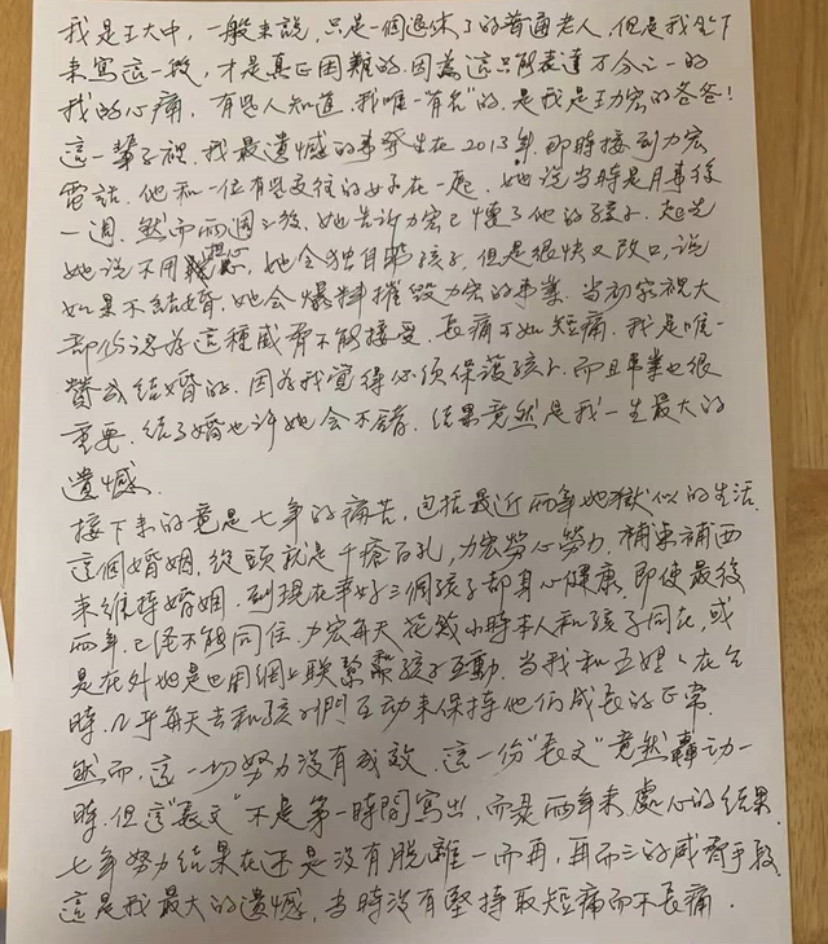 我是王大中，一般來說，只是一個退休了的普通老人，但是我坐下
來寫這一段，才是真正困難的，因為這只能表達万分之一的
我的心痛，有些人知道，我唯一"有名"的，是我是王力宏的爸爸！
這一輩子裡，我最遺憾的事發生在2013年，即時接到力宏
電話，他和一位有些交往的女子在一起，她说當時是月事後
一週，然而兩週之後，她告訴力宏已懷了他的孩子，起先
她说不用担心，她会独自帶孩子，但是很快又改口，说
如果不結婚，她会爆料摧毀力宏的事業，當初家裡大
部份認為這種威脅不能接受，長痛不如短痛，我是唯一
贊成結婚的，因為我覺得必須保護孩子，而且事業也很
重要，結了婚也许她会不錯，結果竟然是我一生最大的
遺憾.
接下來的竟是七年的痛苦，包括最近兩年地獄似的生活，
這個婚姻，從頭就是千瘡百孔，力宏勞心勞力，補東補西
來維持婚姻，到現在幸好三個孩子都身心健康，即使最後
兩年，已经不能同住，力宏每天花幾小時本人和孩子同在，或
是在外地是也用網上联繫和孩子互動，當我和王媽々在台
時，几乎每天去和孩子們互动來保持他们成長的正常.
然而，這一切努力没有成效，這一份"長文"竟然轟动一
時，但這"長文"不是第一時間写出，而是兩年來處心的結果，
七年努力結果在还是没有脱離一而再，再而三的威脅手段，
這是我最大的遺憾，當時没有堅持取短痛而不長痛.